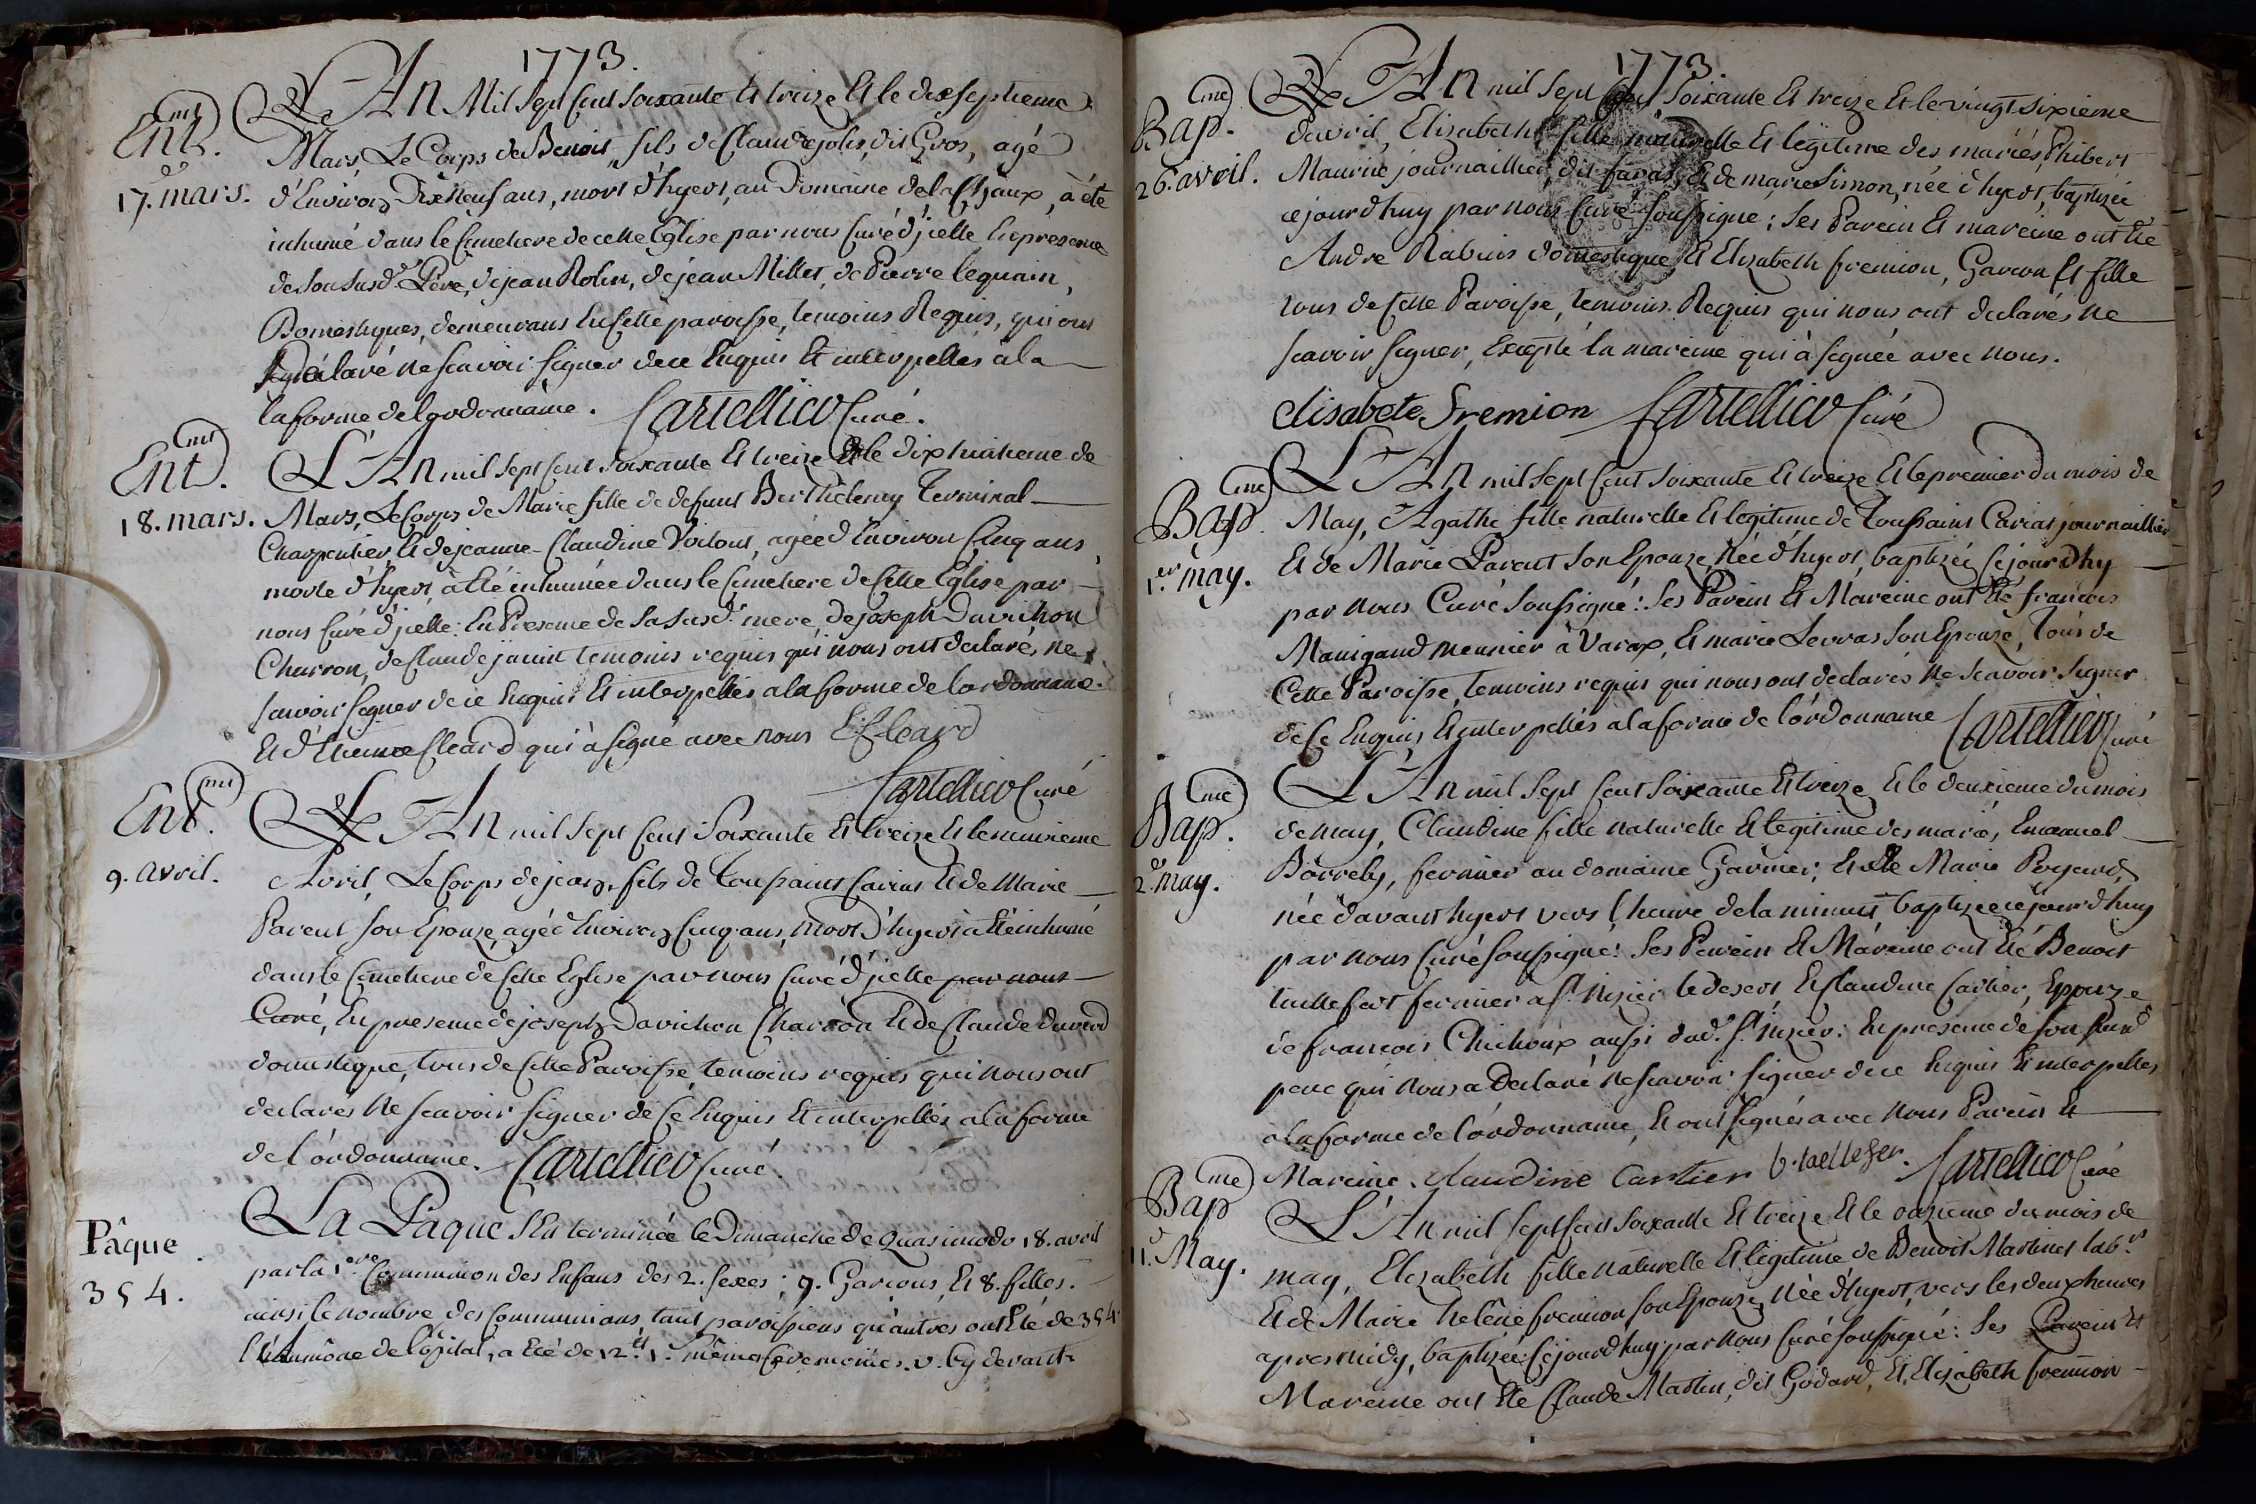 1773.
Ent.mt
17.e mars.
L'An Mil Sept Cent soixante Et treize Et le dixseptieme
Mars, Le Corps de Benoit, fils de Claude joly, dit Gros, agé
d'Environ Dix Neuf ans, mort d'hyert, au Domaine de la , à été
inhumé dans le Cimetiere de cette Eglise par nous Curé d'jcelle En presence
de son susd.t Pere, de jean Rolin, de jean Millet, de Pierre lequain,
Domestiques, demeurans En Cette paroisse, temoins Requis, qui ont
déclaré ne scavoir signer de ce Enquis Et interpellés à la
la forme de lordonnance. Cartellier Curé.
Ent.mt
18. mars.
L'An mil sept Cent soixante Et treize Et le dixhuitieme de
Mars, Le Corps de Marie fille de defunt Barthelemy Terminal
Charpentier Et de jeanne-Claudine Voilout, agée d'Environ Cinq ans,
morte d'hyert, à Eté inhumée dans le Cimetiere de Cette Eglise par
nous Curé d'jcelle: En Presence de sa susd.e mere, de joseph Davichon
Charron, de Claude janin temoins requis qui nous ont declarés ne
scavoir signer de ce Enquis Et interpellés a la forme de lordonnance.
Et d'Etienne Cleard qui à signé avec nous E. Cleard
Cartellier Curé
Ent.mt
9. avril.
L'An mil sept Cent Soixante Et treize Et le neuvieme
Avril, Le Corps de jean, fils de Toussaint Cariat Et de Marie
Parent son Epouze, agé d'Environ Cinq ans, mort d'hyert à Eté inhumé
dans le Cimetiere de Cette Eglise par nous Curé d'jcelle par nous
Curé, En presence de joseph Davichon Charron Et de Claude
domestique, tous de Cette Paroisse, temoins requis qui nous ont
declarés ne scavoir signer de Ce Enquis Et interpellés a la forme
de l'ordonnance. Cartellier Curé.
Pâque
354.
La Paque s'Est terminée le Dimanche de Quasimodo 18. avril
par la 1.ere Communion des Enfans des 2. sexes; 9. Garcons, Et 8. filles.
ainsi le nombre des Communians, tant paroissiens qu'autres ont Eté de 354.
l'Aumône de l'ôpital, a Eté de 12.# 1.s mêmes Ceremonies. v. cy devant.
1773.
Bap.me
26. avril.
L'An mil sept Cent Soixante Et treize Et le vingt sixieme
davril, Elisabeth fille naturelle Et legitime des mariés, Phibert
Maurice journaillier, dit faras, Et de marie Simon, née d'hyert, baptizée
cejourdhuy par nous Curé soussigné: ses Parein Et mareine ont Eté
Andre Rabuis domestique Et Elisabeth fremion, Garcon Et fille
tous de Cette Paroisse, temoins Requis qui nous ont declarés ne
scavoir signer, Excepté la mareine qui à signée avec nous.
elisabete fremion Cartellier Curé
Bap.me
1.er may.
L'An mil sept Cent soixante Et treize Et le premier du mois de
May, Agathe fille naturelle Et legitime de Toussaint Cariat journaillier
Et de Marie Parent son Epouze, Née d'hyert, baptizée Cejourdhy
par nous Curé soussigné: ses Parein Et Mareine ont Eté francois
Manigand meunier à Varax, Et marie Levras son Epouze, Tous de
Cette Paroisse, temoins requis qui nous ont declarés ne scavoir signer
de Ce Enquis, Et interpellés a la forme de l'ordonnance Cartellier Curé
Bap.me
2.d may.
L'An mil sept Cent soixante Et treize Et le deuxieme du mois
de may, Claudine fille naturelle Et legitime des mariés, Emanuel
Borrely, fermier au domaine Garnier; Et de Marie Poyard,
née davant hyert vers l'heure de la minuit baptizée cejourdhuy
par nous Curé soussigné: ses Parein Et Mareine ont Eté Benoit
taillefert fermier a S.t Nizier le desert Et Claudine Cartier, Epouze
de francois Chichoux aussi dud. S.t nizier: En presence de son susd.
pere qui nous a Declaré ne scavoir signer de ce Enquis Et interpellés
a la forme de l'ordonnance, Et ont signés avec nous Parein Et
Mareine. claudine Cartier Cartellier Curé
Bap.me
11.e May.
L'An mil sept Cent soixante Et treize Et le onzieme du mois de
may, Elizabeth fille naturelle Et legitime de Benoit Martinet lab.r
Et de Marie helêne fremion son Epouze, Née d'hyert, vers les deux heures
apres midy, baptizée Cejourdhuy par nous Curé soussigné: ses Parein Et
Mareine ont Eté Claude Martin, dit Godard, Et Elizabeth fremion